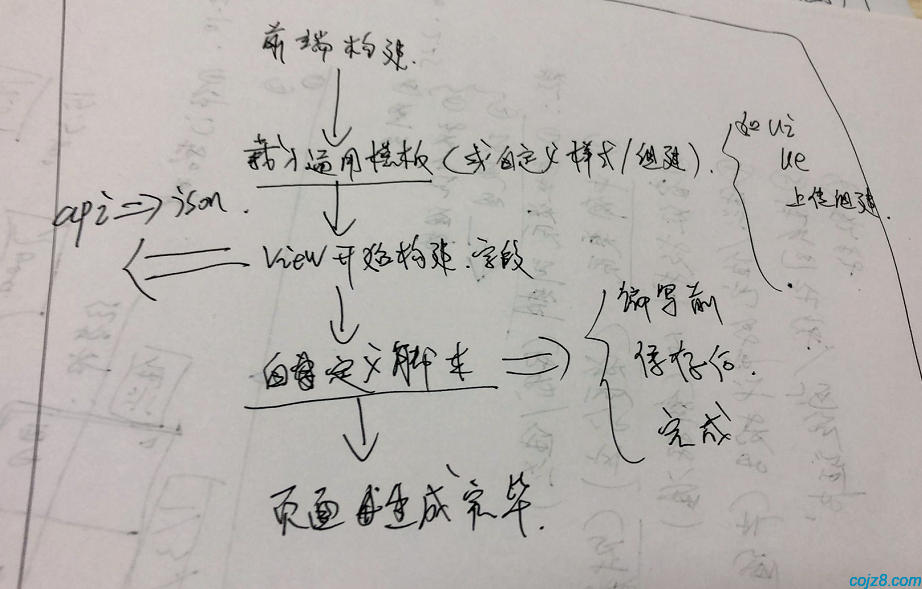 前端构建.
适用模板(或自定义样式/组建).
如ui
ue
上传组建.
api⇒json.
view开始构建.字段
编写前
自定义脚本
保存后.
完成
页面生成完毕.
cojz8.com